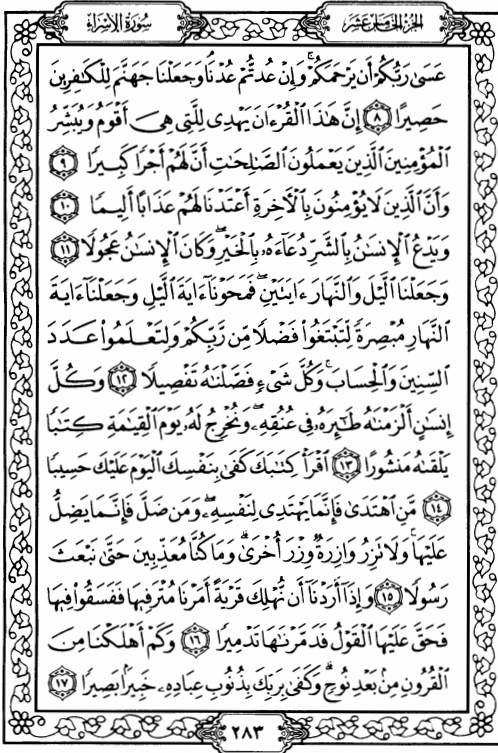 سُورَةُ الإِسْرَاءِ
الجُزْءُ الخَامِسَ عَشَرَ
عَسَىٰ رَبُّكُمْ أَن يَرْحَمَكُمْ ۚ وَإِنْ عُدتُّمْ عُدْنَا ۘ وَجَعَلْنَا جَهَنَّمَ لِلْكَٰفِرِينَ
حَصِيرًا ٨ إِنَّ هَٰذَا الْقُرْءَانَ يَهْدِى لِلَّتِى هِىَ أَقْوَمُ وَيُبَشِّرُ
الْمُؤْمِنِينَ الَّذِينَ يَعْمَلُونَ الصَّٰلِحَٰتِ أَنَّ لَهُمْ أَجْرًا كَبِيرًا ٩
وَأَنَّ الَّذِينَ لَا يُؤْمِنُونَ بِالْءَاخِرَةِ أَعْتَدْنَا لَهُمْ عَذَابًا أَلِيمًا ١٠
وَيَدْعُ الْإِنسَٰنُ بِالشَّرِّ دُعَآءَهُۥ بِالْخَيْرِ ۖ وَكَانَ الْإِنسَٰنُ عَجُولًا ١١
وَجَعَلْنَا الَّيْلَ وَالنَّهَارَ ءَايَتَيْنِ ۖ فَمَحَوْنَآ ءَايَةَ الَّيْلِ وَجَعَلْنَآ ءَايَةَ
النَّهَارِ مُبْصِرَةً لِّتَبْتَغُوا۟ فَضْلًا مِّن رَّبِّكُمْ وَلِتَعْلَمُوا۟ عَدَدَ
السِّنِينَ وَالْحِسَابَ ۚ وَكُلَّ شَىْءٍ فَصَّلْنَٰهُ تَفْصِيلًا ١٢ وَكُلَّ
إِنسَٰنٍ أَلْزَمْنَٰهُ طَٰٓئِرَهُۥ فِى عُنُقِهِۦ ۖ وَنُخْرِجُ لَهُۥ يَوْمَ الْقِيَٰمَةِ كِتَٰبًا
يَلْقَىٰهُ مَنشُورًا ١٣ اقْرَأْ كِتَٰبَكَ كَفَىٰ بِنَفْسِكَ الْيَوْمَ عَلَيْكَ حَسِيبًا
١٤ مَّنِ اهْتَدَىٰ فَإِنَّمَا يَهْتَدِى لِنَفْسِهِۦ ۖ وَمَن ضَلَّ فَإِنَّمَا يَضِلُّ
عَلَيْهَا ۚ وَلَا تَزِرُ وَازِرَةٌ وِزْرَ أُخْرَىٰ ۗ وَمَا كُنَّا مُعَذِّبِينَ حَتَّىٰ نَبْعَثَ
رَسُولًا ١٥ وَإِذَآ أَرَدْنَآ أَن نُّهْلِكَ قَرْيَةً أَمَرْنَا مُتْرَفِيهَا فَفَسَقُوا۟ فِيهَا
فَحَقَّ عَلَيْهَا الْقَوْلُ فَدَمَّرْنَٰهَا تَدْمِيرًا ١٦ وَكَمْ أَهْلَكْنَا مِنَ
الْقُرُونِ مِنۢ بَعْدِ نُوحٍ ۗ وَكَفَىٰ بِرَبِّكَ بِذُنُوبِ عِبَادِهِۦ خَبِيرًۢا بَصِيرًا ١٧
٢٨٣